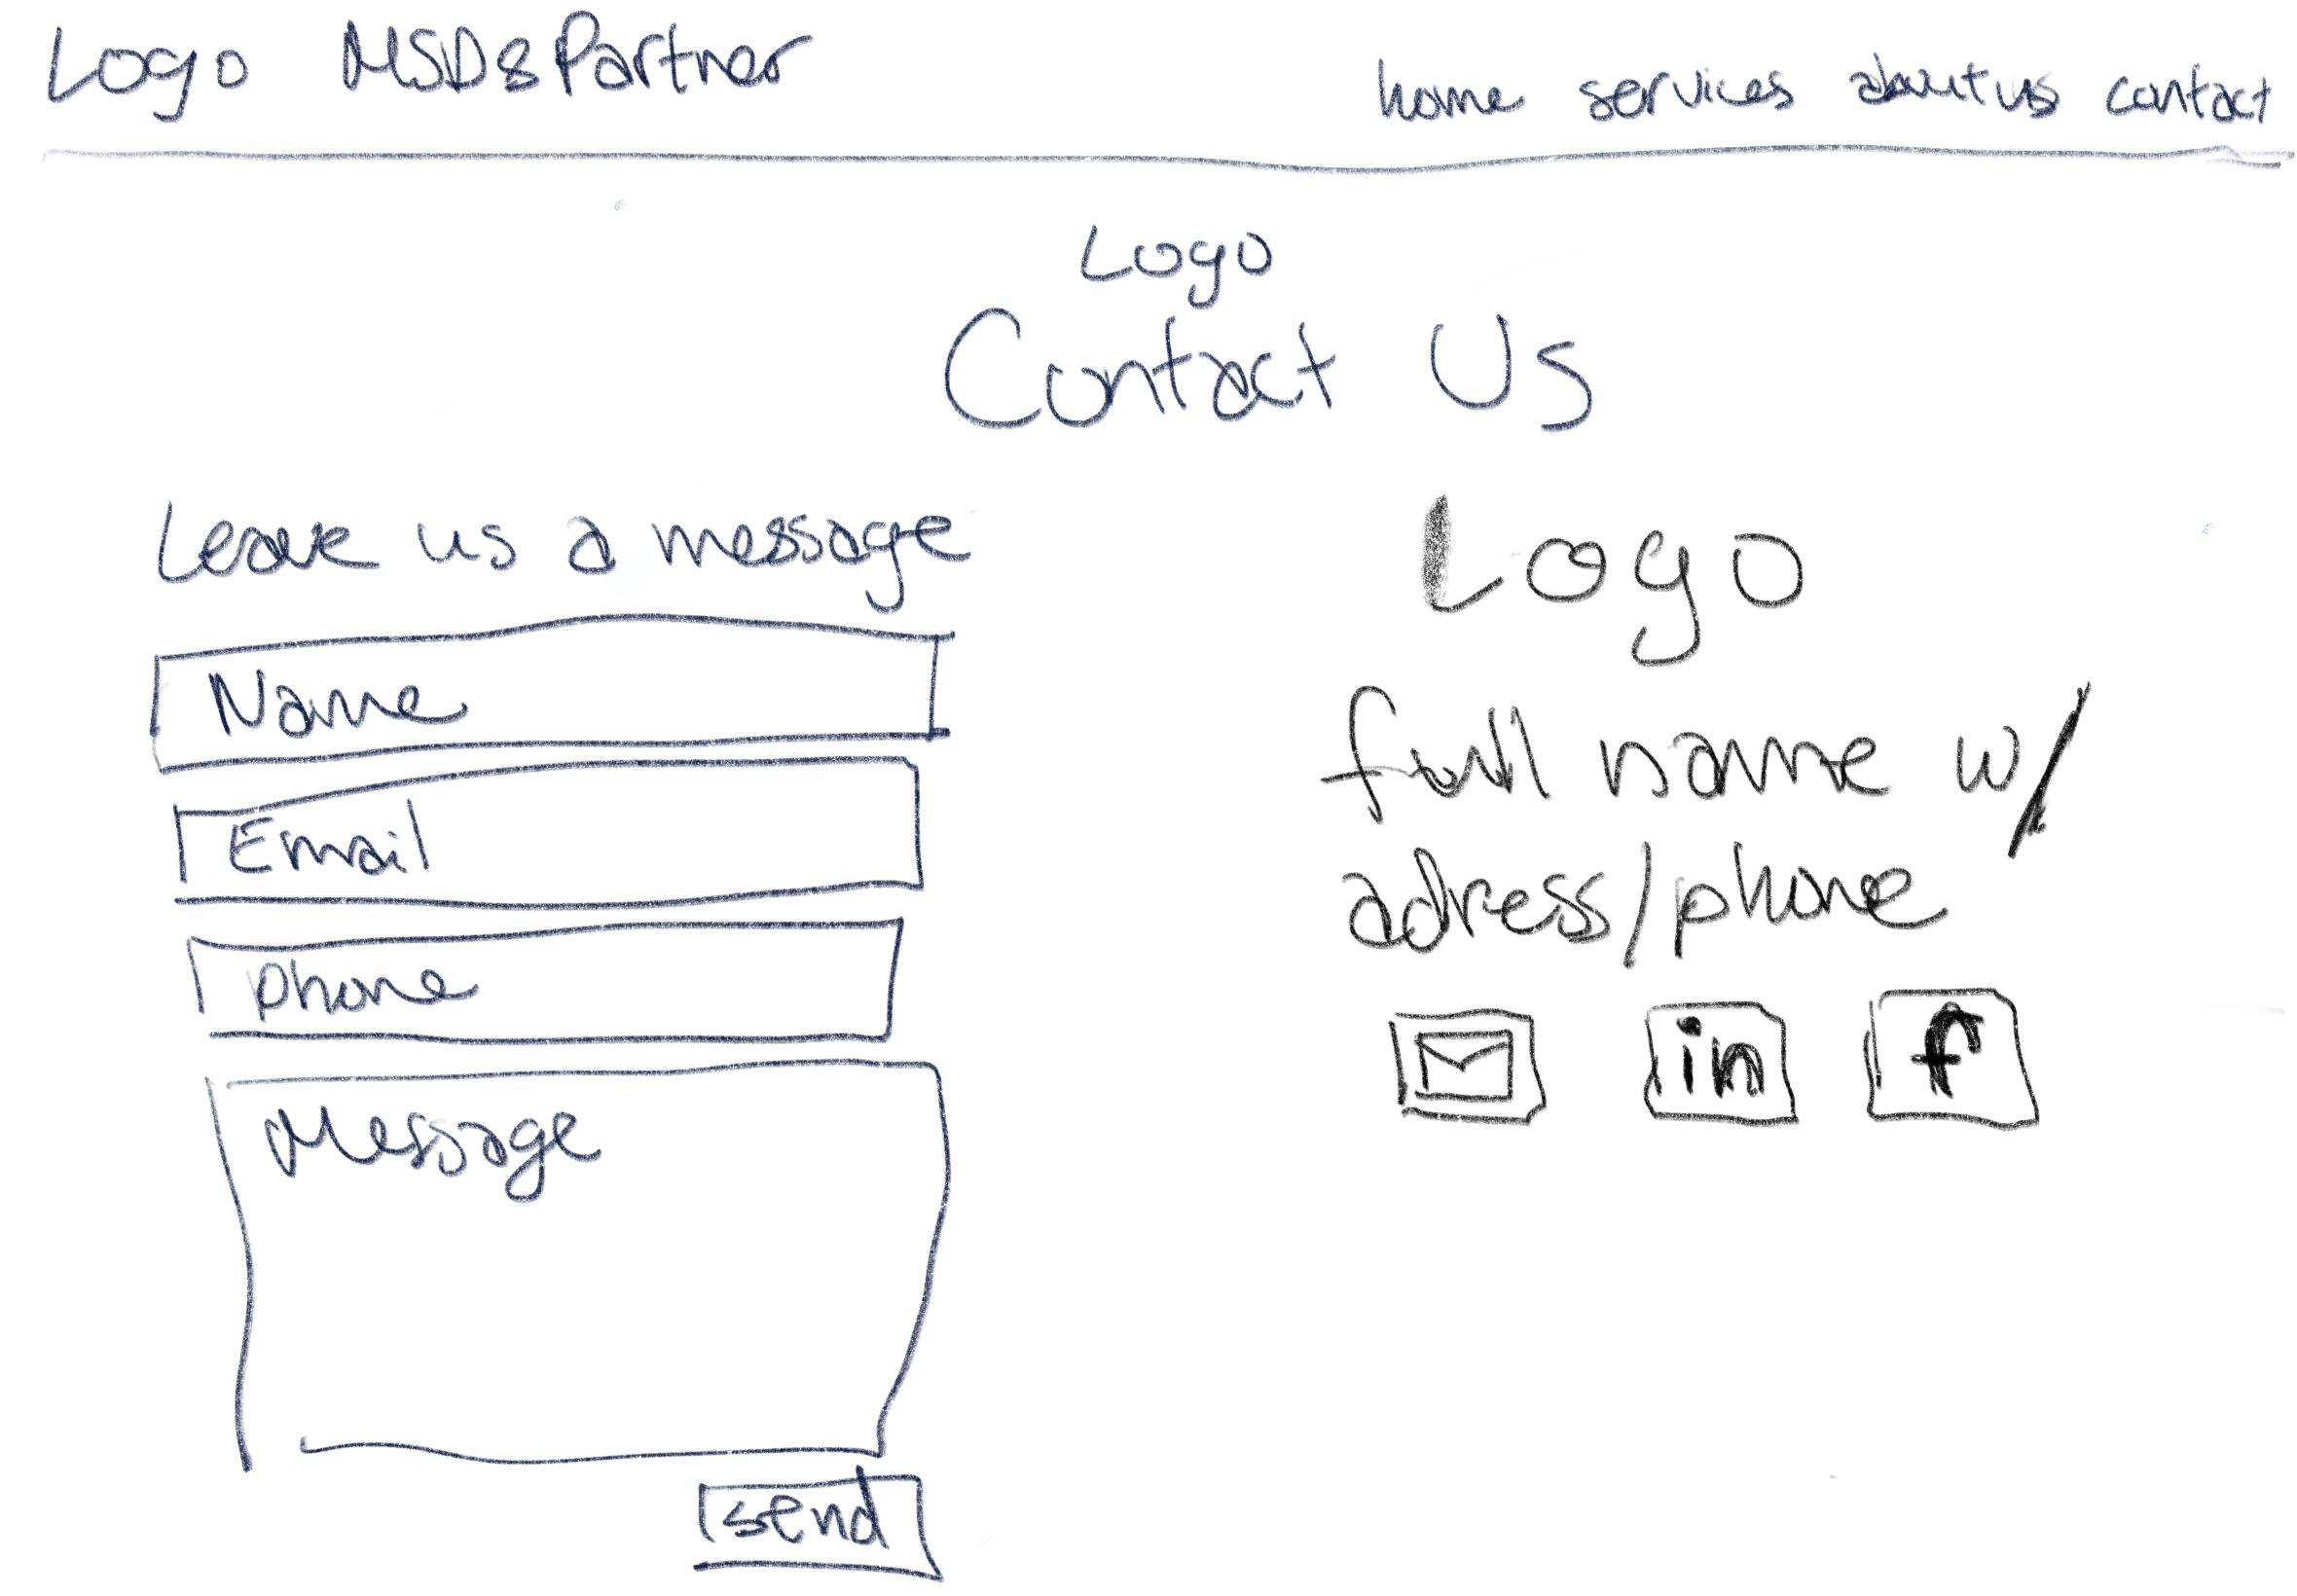 Logo MSD&Partner
home services about us contact
Logo
Contact Us
Leave us a message
Name
Email
phone
Message
send
Logo
full name w/
adress/phone
in
f